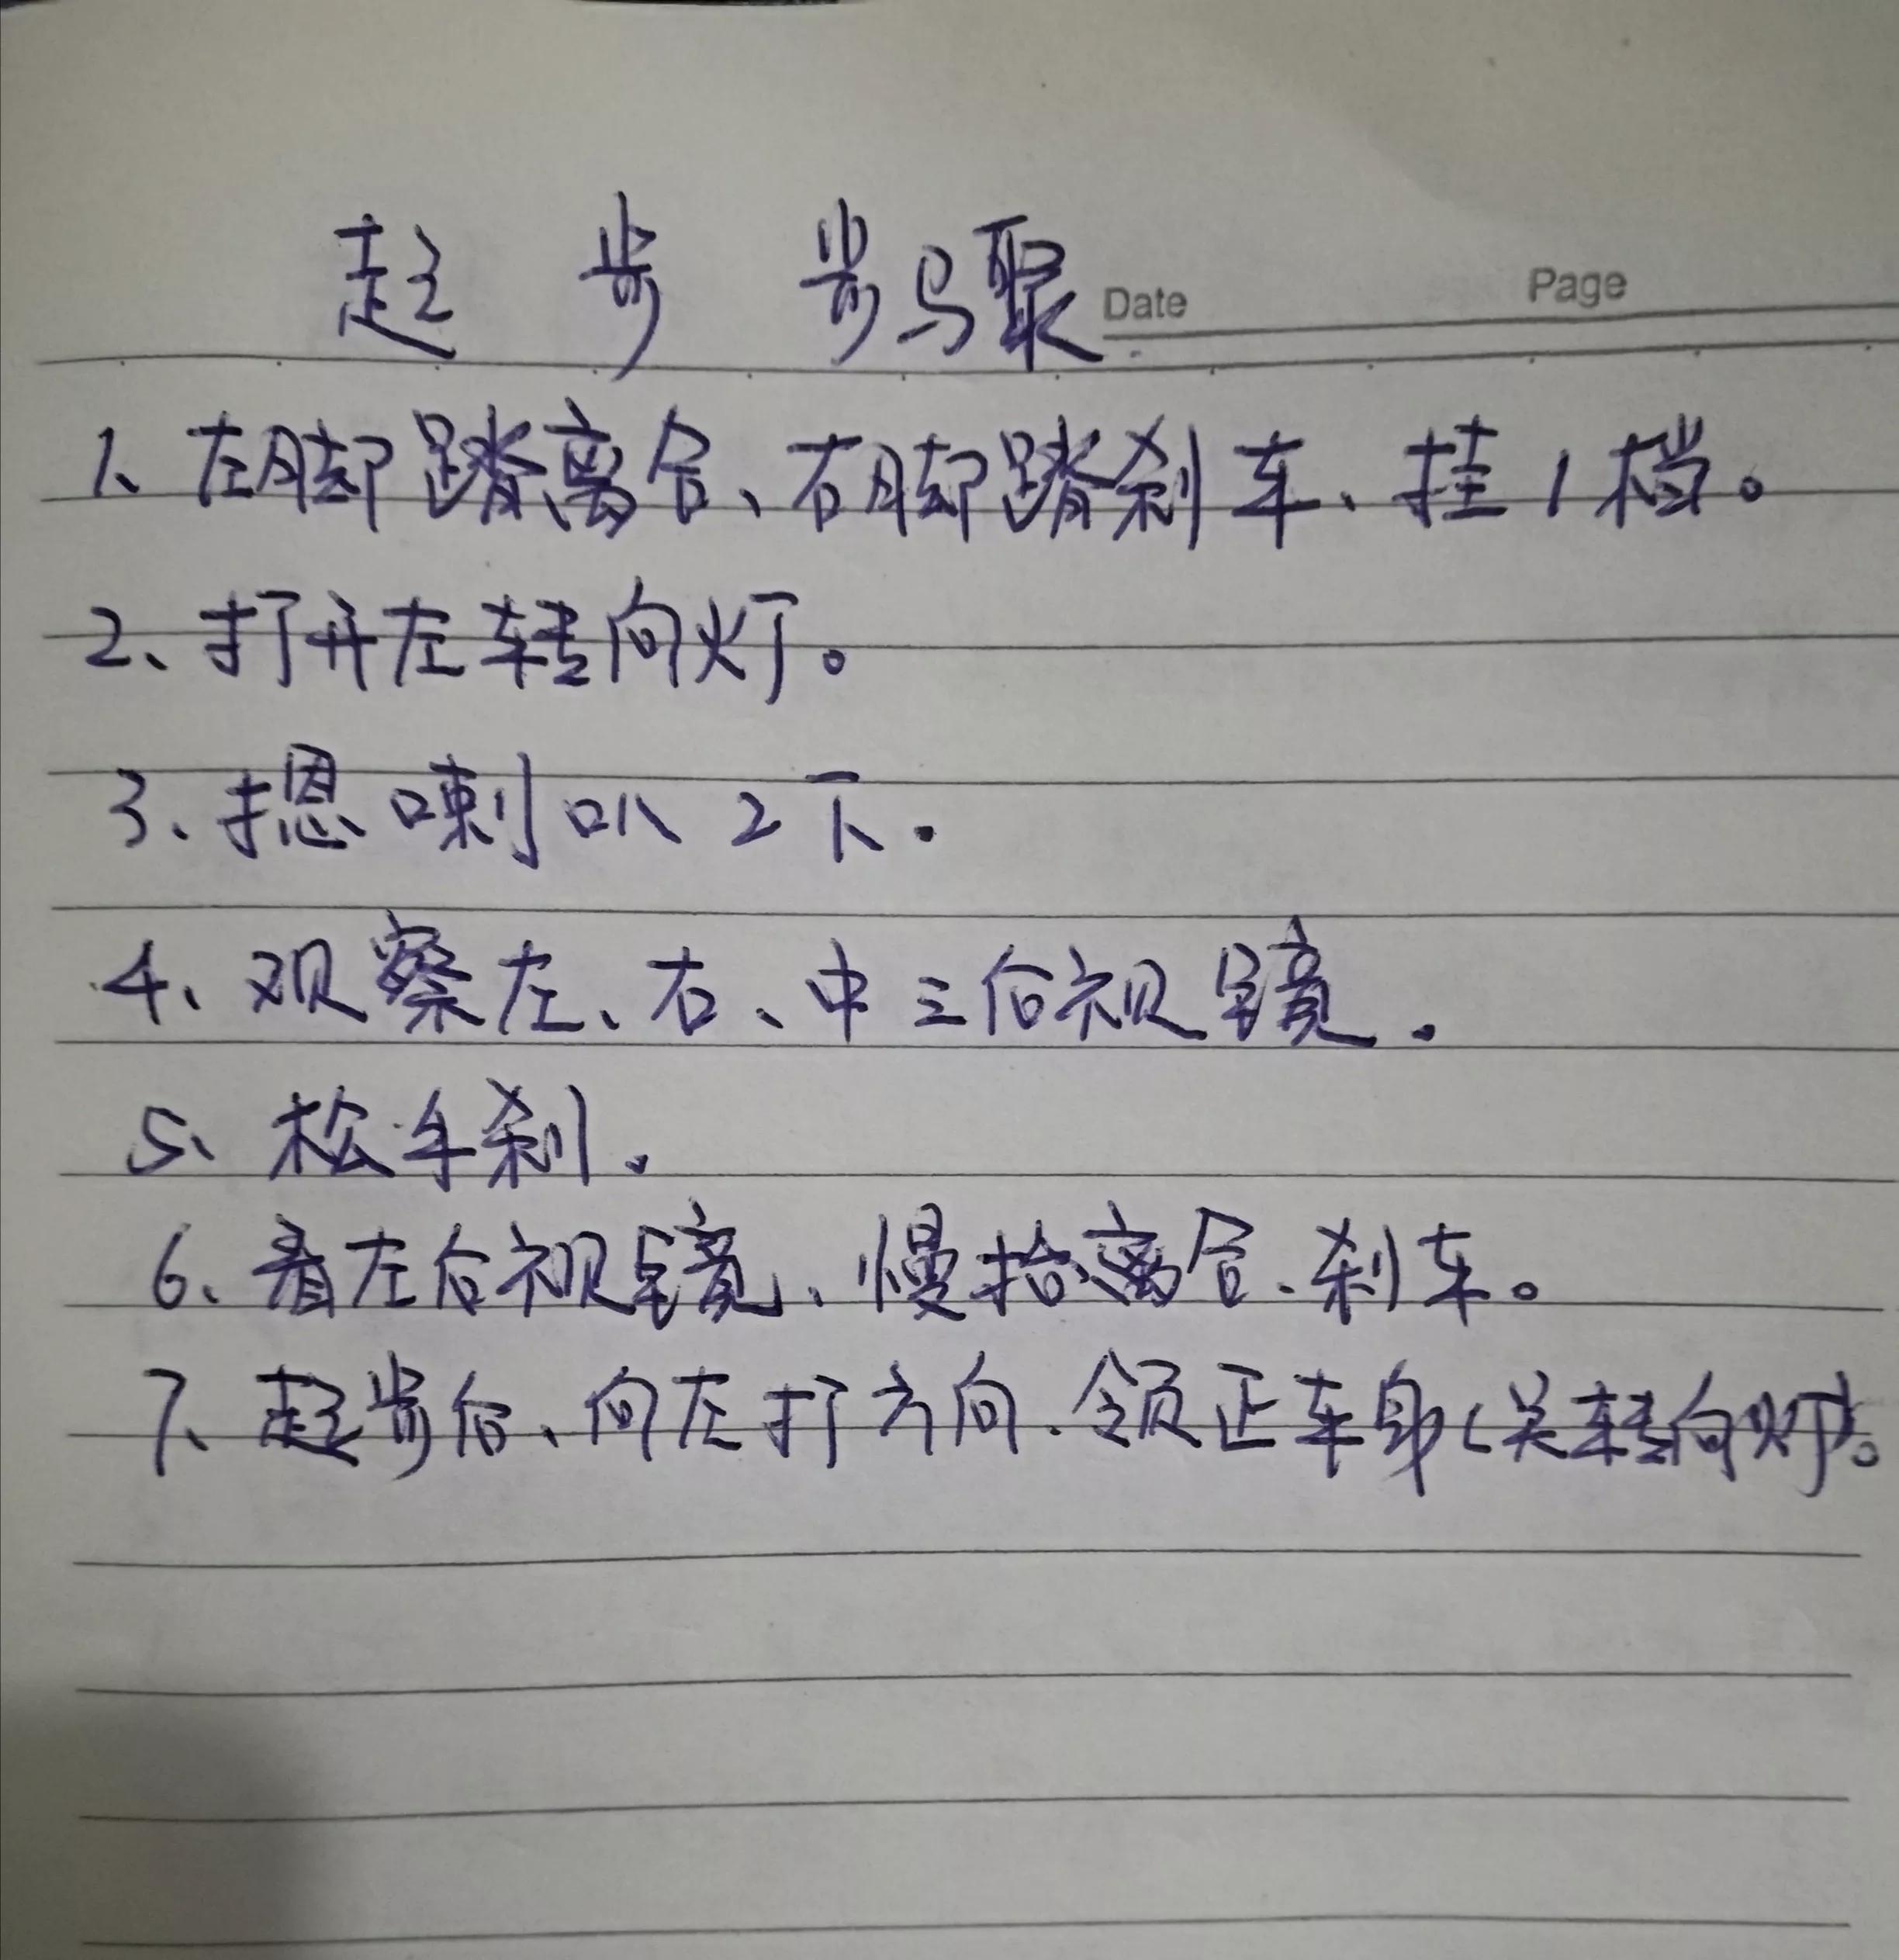 起步 步骤
Date Page
1、左脚踏离合、右脚踏刹车、挂1档。
2、打开左转向灯。
3、摁喇叭2下.
4、观察左、右、中三后视镜.
5、松手刹.
6、看左后视镜、慢抬离合、刹车。
7、起步后、向左打方向.领正车身(关转向灯)。